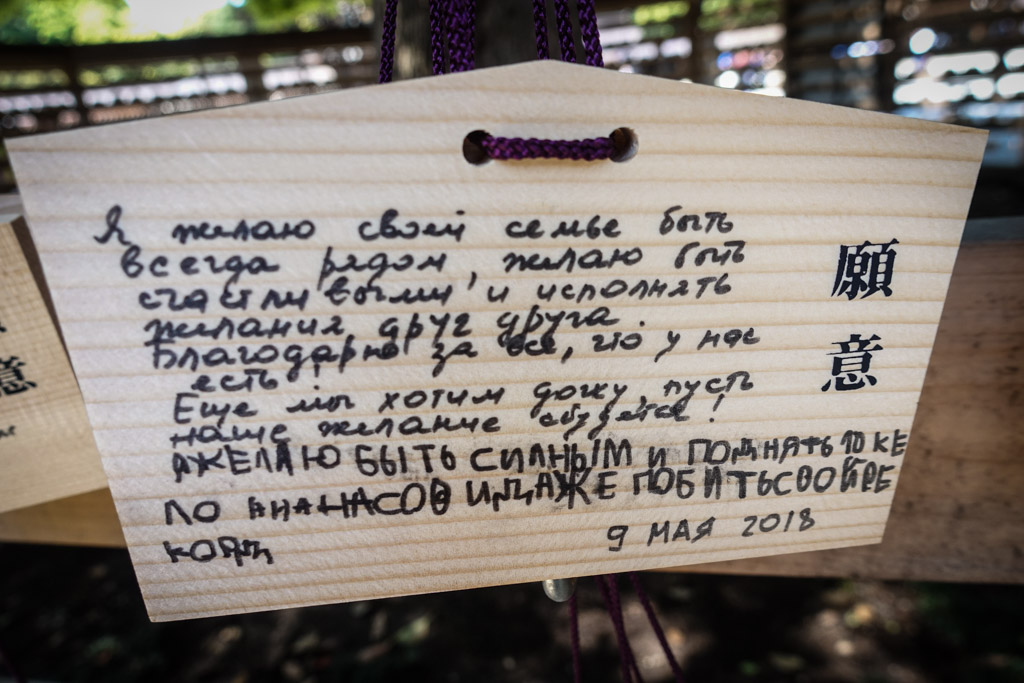 Я желаю своей семье быть
всегда рядом, желаю быть
счастливыми и исполнять
желания друг друга.
Благодарна за все, что у нас
есть!
Еще мы хотим дочку, пусть
наше желание сбудется!
ЯЖЕЛАЮ БЫТЬ СИЛНЫМ И ПОДНЯТЬ 10 КЕ
ЛО АНАНАСОВ И ДАЖЕ ПОБИТЬ СВОЙ РЕ
КОРД
9 МАЯ 2018
願意
意